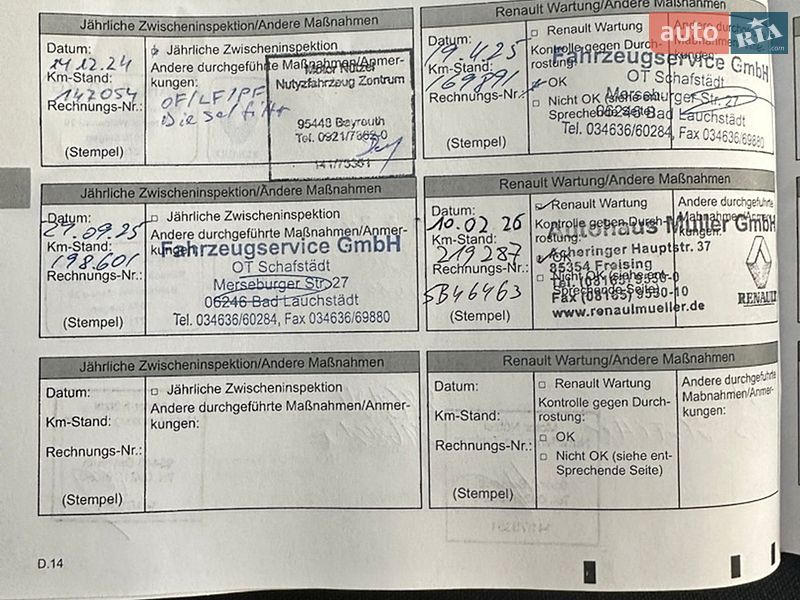 Jährliche Zwischeninspektion/Andere Maßnahmen
Datum:
14.12.24
Km-Stand:
142054
Rechnungs-Nr.:
(Stempel)
Jährliche Zwischeninspektion
Andere durchgeführte Maßnahmen/Anmer-
kungen:
OF/LF/PF
Dieselfilter
Motor Nützel
Nutzfahrzeug Zentrum
95448 Bayreuth
Tel. 0921/7363-0
Renault Wartung/Andere Maßnahmen
Datum:
19.4.25
Km-Stand:
169891
Rechnungs-Nr.:
(Stempel)
Renault Wartung
Kontrolle gegen Durch-
rostung:
OK
Nicht OK (siehe ent-
Sprechende Seite)
Fahrzeugservice GmbH
OT Schafstädt
Merseburger Str. 27
06246 Bad Lauchstädt
Tel. 034636/60284, Fax 034636/69880
auto RIA .com
Jährliche Zwischeninspektion/Andere Maßnahmen
Datum:
24.09.25
Km-Stand:
198.601
Rechnungs-Nr.:
(Stempel)
Jährliche Zwischeninspektion
Andere durchgeführte Maßnahmen/Anmer-
kungen:
Fahrzeugservice GmbH
OT Schafstädt
Merseburger Str. 27
06246 Bad Lauchstädt
Tel. 034636/60284, Fax 034636/69880
Renault Wartung/Andere Maßnahmen
Datum:
10.02.26
Km-Stand:
219287
Rechnungs-Nr.:
5B46463
(Stempel)
Renault Wartung
Kontrolle gegen Durch-
rostung:
OK
Nicht OK (siehe ent-
Sprechende Seite)
Andere durchgeführte
Maßnahmen/Anmer-
kungen:
Autohaus Müller GmbH
Acheringer Hauptstr. 37
85354 Freising
Tel. (08165) 9550-0
Fax (08165) 9550-10
www.renaulmueller.de
RENAULT
Jährliche Zwischeninspektion/Andere Maßnahmen
Datum:
Km-Stand:
Rechnungs-Nr.:
(Stempel)
Jährliche Zwischeninspektion
Andere durchgeführte Maßnahmen/Anmer-
kungen:
Renault Wartung/Andere Maßnahmen
Datum:
Km-Stand:
Rechnungs-Nr.:
(Stempel)
Renault Wartung
Kontrolle gegen Durch-
rostung:
OK
Nicht OK (siehe ent-
Sprechende Seite)
Andere durchgeführte
Mabnahmen/Anmer-
kungen:
D.14